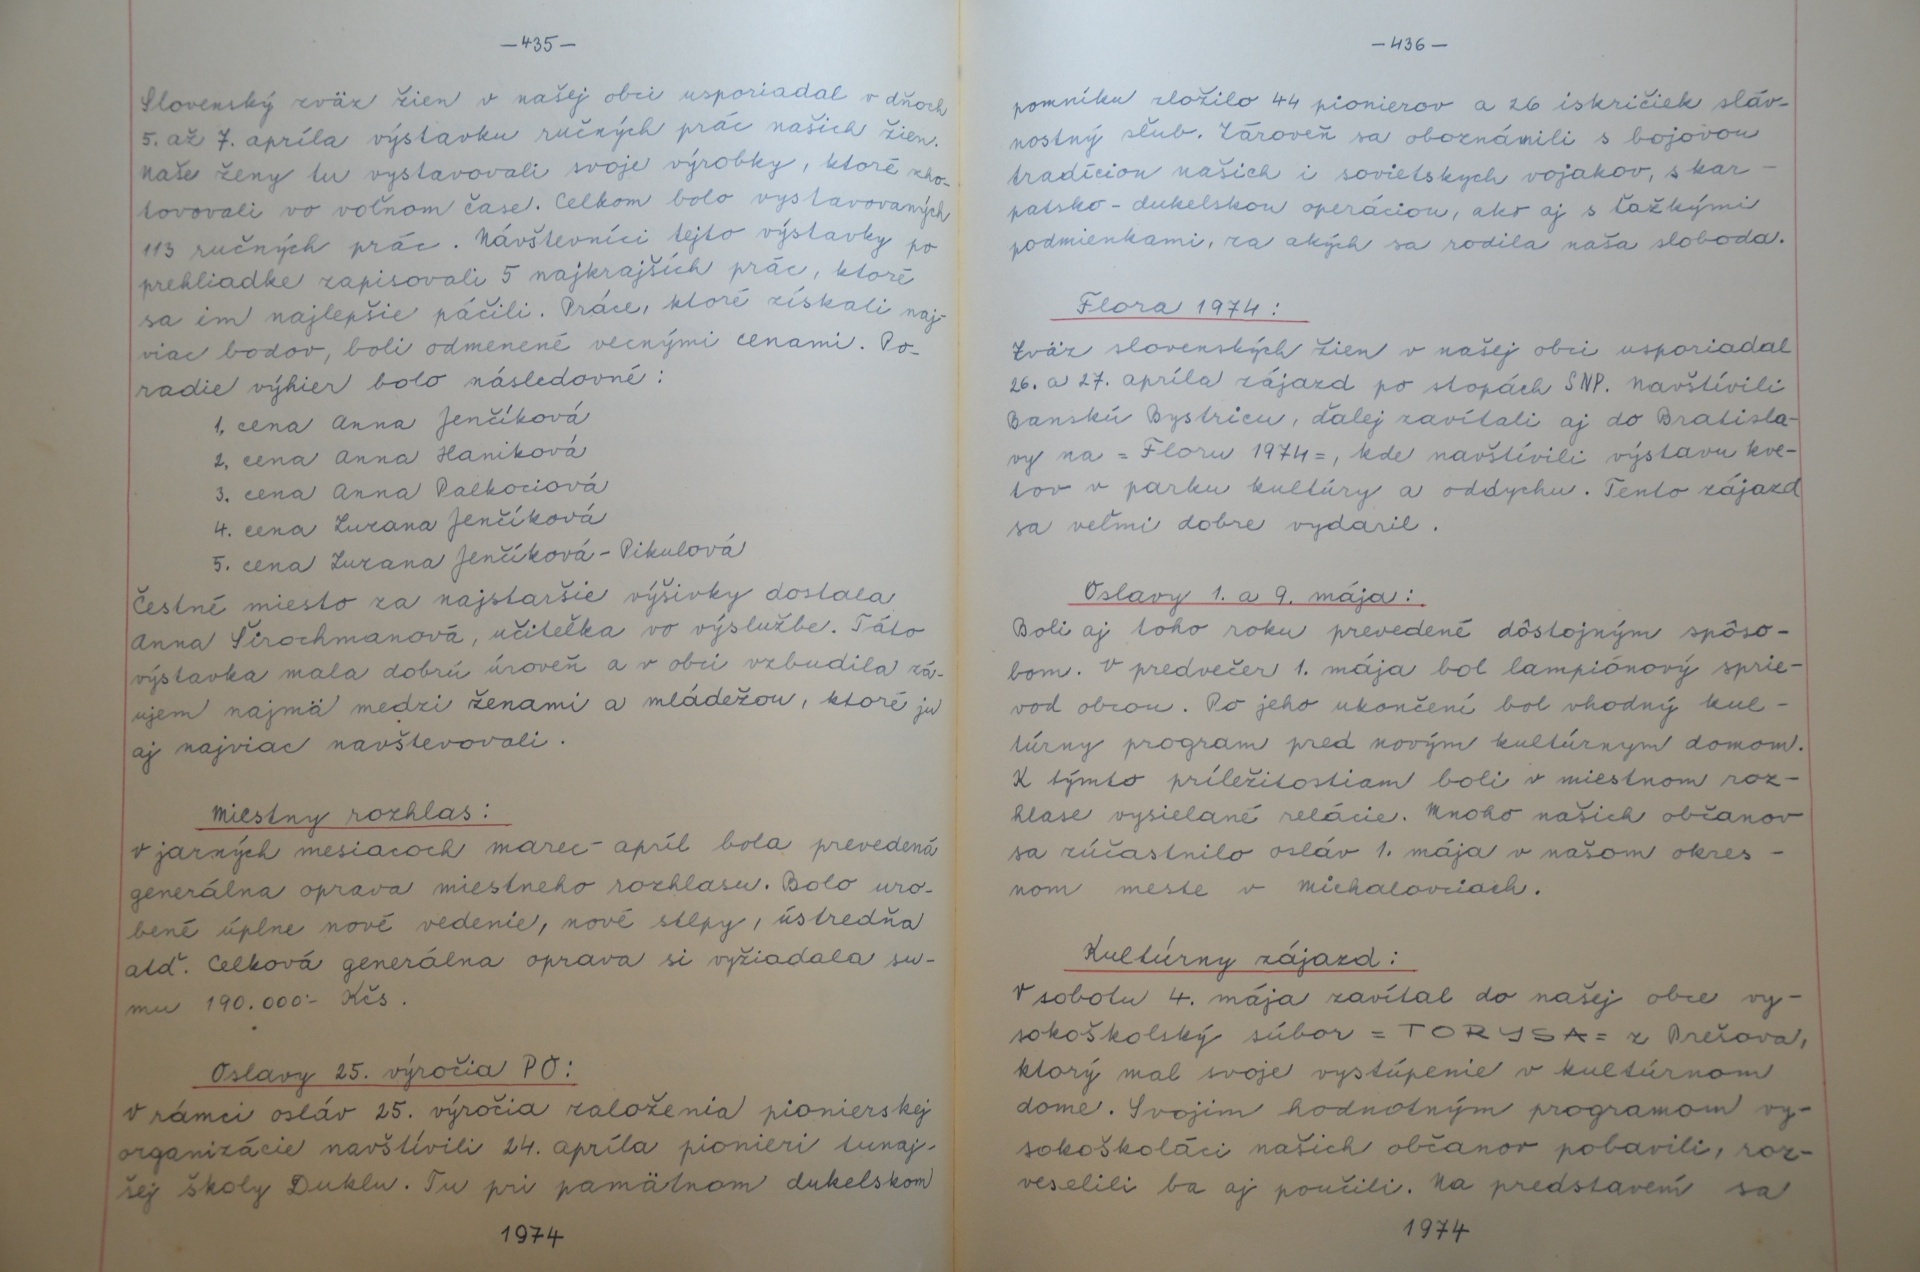 —435—
Slovenský zväz žien v našej obci usporiadal v dňoch
5. až 7. apríla výstavku ručných prác našich žien.
Naše ženy tu vystavovali svoje výrobky, ktoré zho-
tovovali vo voľnom čase. Celkom bolo vystavovaných
113 ručných prác. Návštevníci tejto výstavky po
prehliadke zapisovali 5 najkrajších prác, ktoré
sa im najlepšie páčili. Práce, ktoré získali naj-
viac bodov, boli odmenené vecnými cenami. Po-
radie výhier bolo následovné:
1. cena Anna Jenčíková
2. cena Anna Haniková
3. cena Anna Palkociová
4. cena Zuzana Jenčíková
5. cena Zuzana Jenčíková-Pikulová
Čestné miesto za najstaršie výšivky dostala
Anna Širochmanová, učiteľka vo výslužbe. Táto
výstavka mala dobrú úroveň a v obci vzbudila zá-
ujem najmä medzi ženami a mládežou, ktoré ju
aj najviac navštevovali.
Miestny rozhlas:
V jarných mesiacoch marec-apríl bola prevedená
generálna oprava miestneho rozhlasu. Bolo uro-
bené úplne nové vedenie, nové stĺpy, ústredňa
atď. Celková generálna oprava si vyžiadala su-
mu 190.000:- Kčs.
Oslavy 25. výročia PO:
V rámci osláv 25. výročia založenia pionierskej
organizácie navštívili 24. apríla pionieri tunaj-
šej školy Duklu. Tu pri pamätnom dukelskom
1974
—436—
pomníku zložilo 44 pionierov a 26 iskričiek sláv-
nostný sľub. Zároveň sa oboznámili s bojovou
tradíciou našich i sovietskych vojakov, s kar-
patsko-dukelskou operáciou, ako aj s ťažkými
podmienkami, za akých sa rodila naša sloboda.
Flora 1974:
Zväz slovenských žien v našej obci usporiadal
26. a 27. apríla zájazd po stopách SNP. Navštívili
Banskú Bystricu, ďalej zavítali aj do Bratisla-
vy na =Floru 1974=, kde navštívili výstavu kve-
tov v parku kultúry a oddychu. Tento zájazd
sa veľmi dobre vydaril.
Oslavy 1. a 9. mája:
Boli aj toho roku prevedené dôstojným spôso-
bom. V predvečer 1. mája bol lampiónový sprie-
vod obcou. Po jeho ukončení bol vhodný kul-
túrny program pred novým kultúrnym domom.
K týmto príležitostiam boli v miestnom roz-
hlase vysielané relácie. Mnoho našich občanov
sa zúčastnilo osláv 1. mája v našom okres-
nom meste v Michalovciach.
Kultúrny zájazd:
V sobotu 4. mája zavítal do našej obce vy-
sokoškolský súbor =TORYSA= z Prešova,
ktorý mal svoje vystúpenie v kultúrnom
dome. Svojim hodnotným programom vy-
sokoškoláci našich občanov pobavili, roz-
veselili ba aj poučili. Na predstavení sa
1974